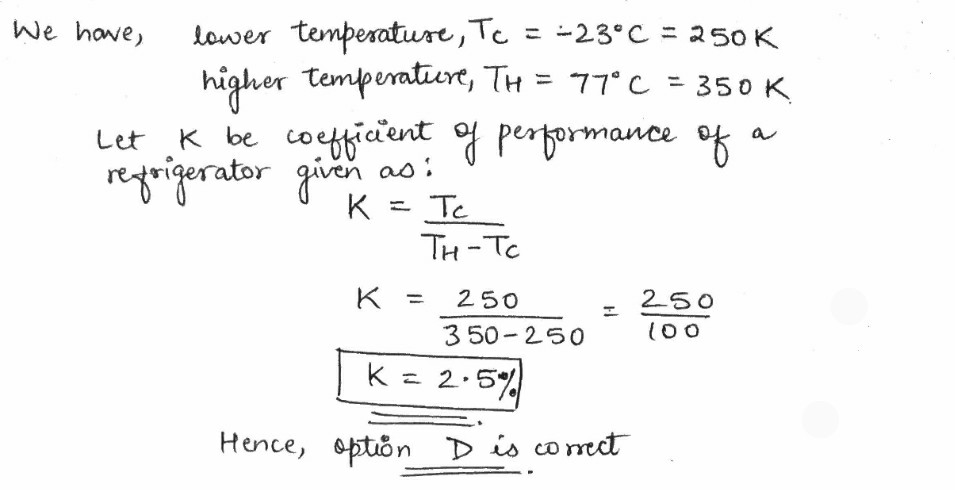 We have, lower temperature, Tc = -23°C = 250K
higher temperature, TH = 77°C = 350 K
Let K be coefficient of performance of a
refrigerator given as:
K = Tc / TH - Tc
K = 250 / 350-250 = 250 / 100
K = 2.5%
Hence, option D is correct